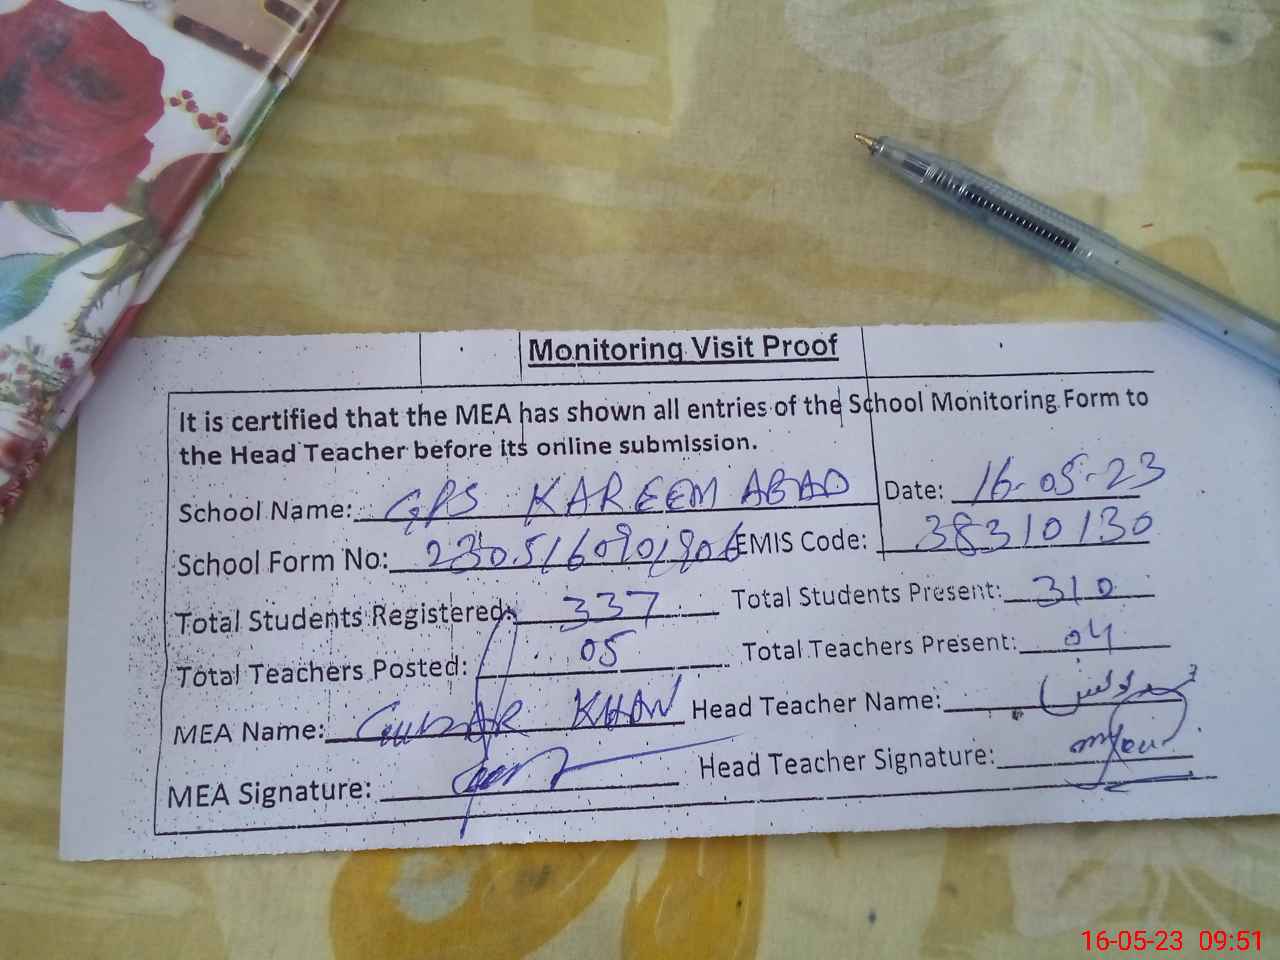 Monitoring Visit Proof
It is certified that the MEA has shown all entries of the School Monitoring Form to
the Head Teacher before its online submission.
School Name: GPS KAREEM ABAD Date: 16-05-23
School Form No: EMIS Code: 38310130
Total Students Registered: 337 Total Students Present: 310
Total Teachers Posted: 05 Total Teachers Present: 04
MEA Name: KHAN Head Teacher Name:
MEA Signature: Head Teacher Signature:
16-05-23 09:51